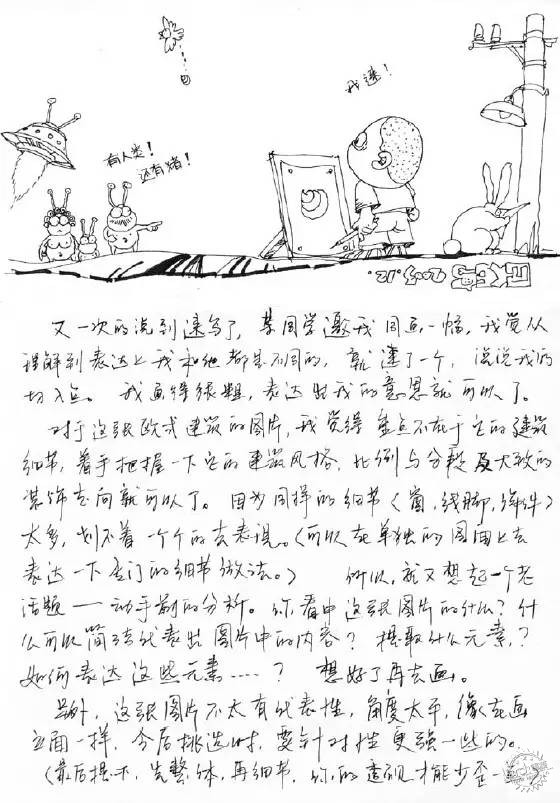 我逃！
有人类！
还有猪！
2003.12.
又一次的说到速写了，某同学邀我同画一幅，我觉从
理解到表达上我和他都是不同的，就速了一个，说说我的
切入点。我画得很粗，表达出我的意思就可以了。
对于这张欧式建筑的图片，我觉得重点不在于它的建筑
细节，着手把握一下它的建筑风格，比例与分割及大致的
装饰走向就可以了。因为同样的细节（窗，线脚，饰件）
太多，划不着一个个的去表现。（可以在单独的图面上去
表达一下专门的细节做法。） 所以，就又想起一个老
话题——动手前的分析。你看中这张图片的什么？什
么可以简洁代表出图片中的内容？提取什么元素？
如何表达这些元素……？ 想好了再去画。
另外，这张图片不太有代表性，角度太平，像在画
立面一样，今后挑选时，要针对性更强一些的。
（最后提示，先整体，再细节，你的透视才能少歪一